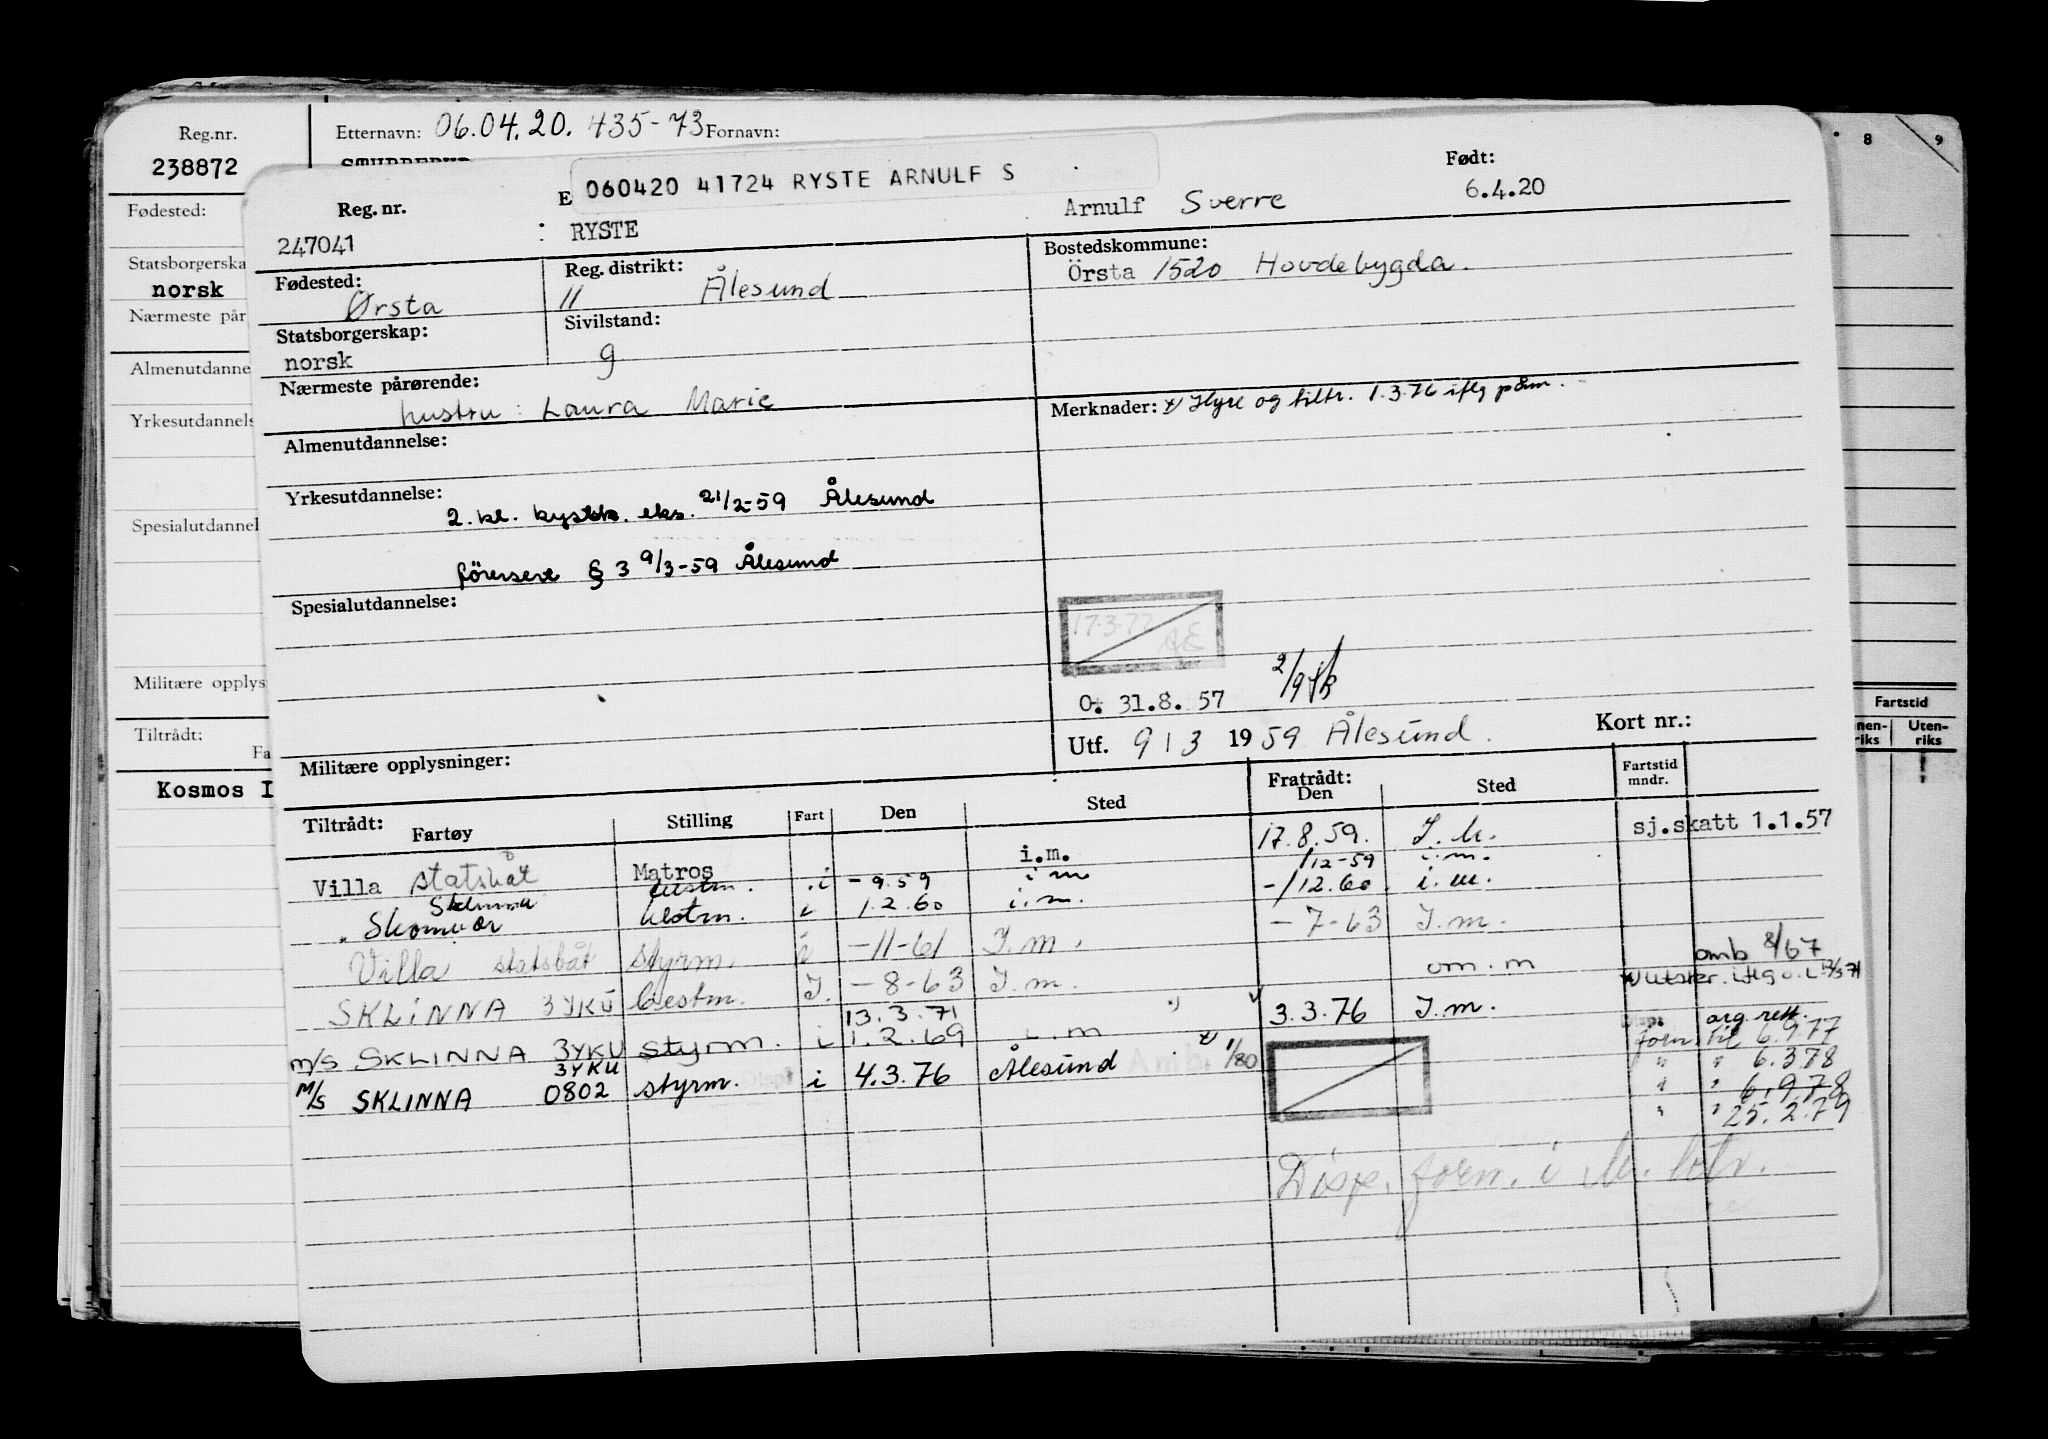 Reg.nr. Etternavn: 06.04.20. 435-73 Fornavn: 8 9
238872
Fødested:
Statsborgerska
norsk
Nærmeste pår
Almenutdanne
Yrkesutdannels
Spesialutdannel
Militære opplys
Tiltrådt:
Fa
Kosmos I
Fartstid
nen-riks Uten-riks
060420 41724 RYSTE ARNULF S
Reg. nr. E Født:
247041 : RYSTE Arnulf Sverre 6.4.20
Fødested: Reg. distrikt: Bostedskommune:
Ørsta 11 Ålesund Örsta 1520 Hovdebygda.
Statsborgerskap: Sivilstand:
norsk g
Nærmeste pårørende:
hustru: Laura Marie
Merknader: Hyre og tiltr. 1.3.76 iflg
Almenutdannelse:
Yrkesutdannelse:
2. kl. eks. 21/2-59 Ålesund
§ 3 9/3-59 Ålesund
Spesialutdannelse:
17.3.77 AE
O. 31.8.57 2/9
Utf. 9 / 3 1959 Ålesund. Kort nr.:
Militære opplysninger:
Tiltrådt: Fratrådt: Fartstid mndr.
Fartøy Stilling Fart Den Sted Den Sted
Villa statsbåt Matros i.m. 17.8.59. I.M. sj.skatt 1.1.57
Sklinna i -9.59 i m /12-59 i.m.
Skomvær bestm. i 1.2.60 i.m. -/12.60 i.m.
Villa statsbåt styrm. i -11-61 I.m. -7-63 I.m.
SKLINNA 3YKU bestm. I. -8-63 I.m. om.m omb 8/67
13.3.71
m/s SKLINNA 3YKU styrm. i 1.2.69 i.m 3.3.76 I.m.
M/S SKLINNA 3YKU 0802 styrm. i 4.3.76 Ålesund 1/80
forn. til 6.9.77
" " 6.3.78
" " 6.9.78
" " 25.2.79
Disp. forn. i